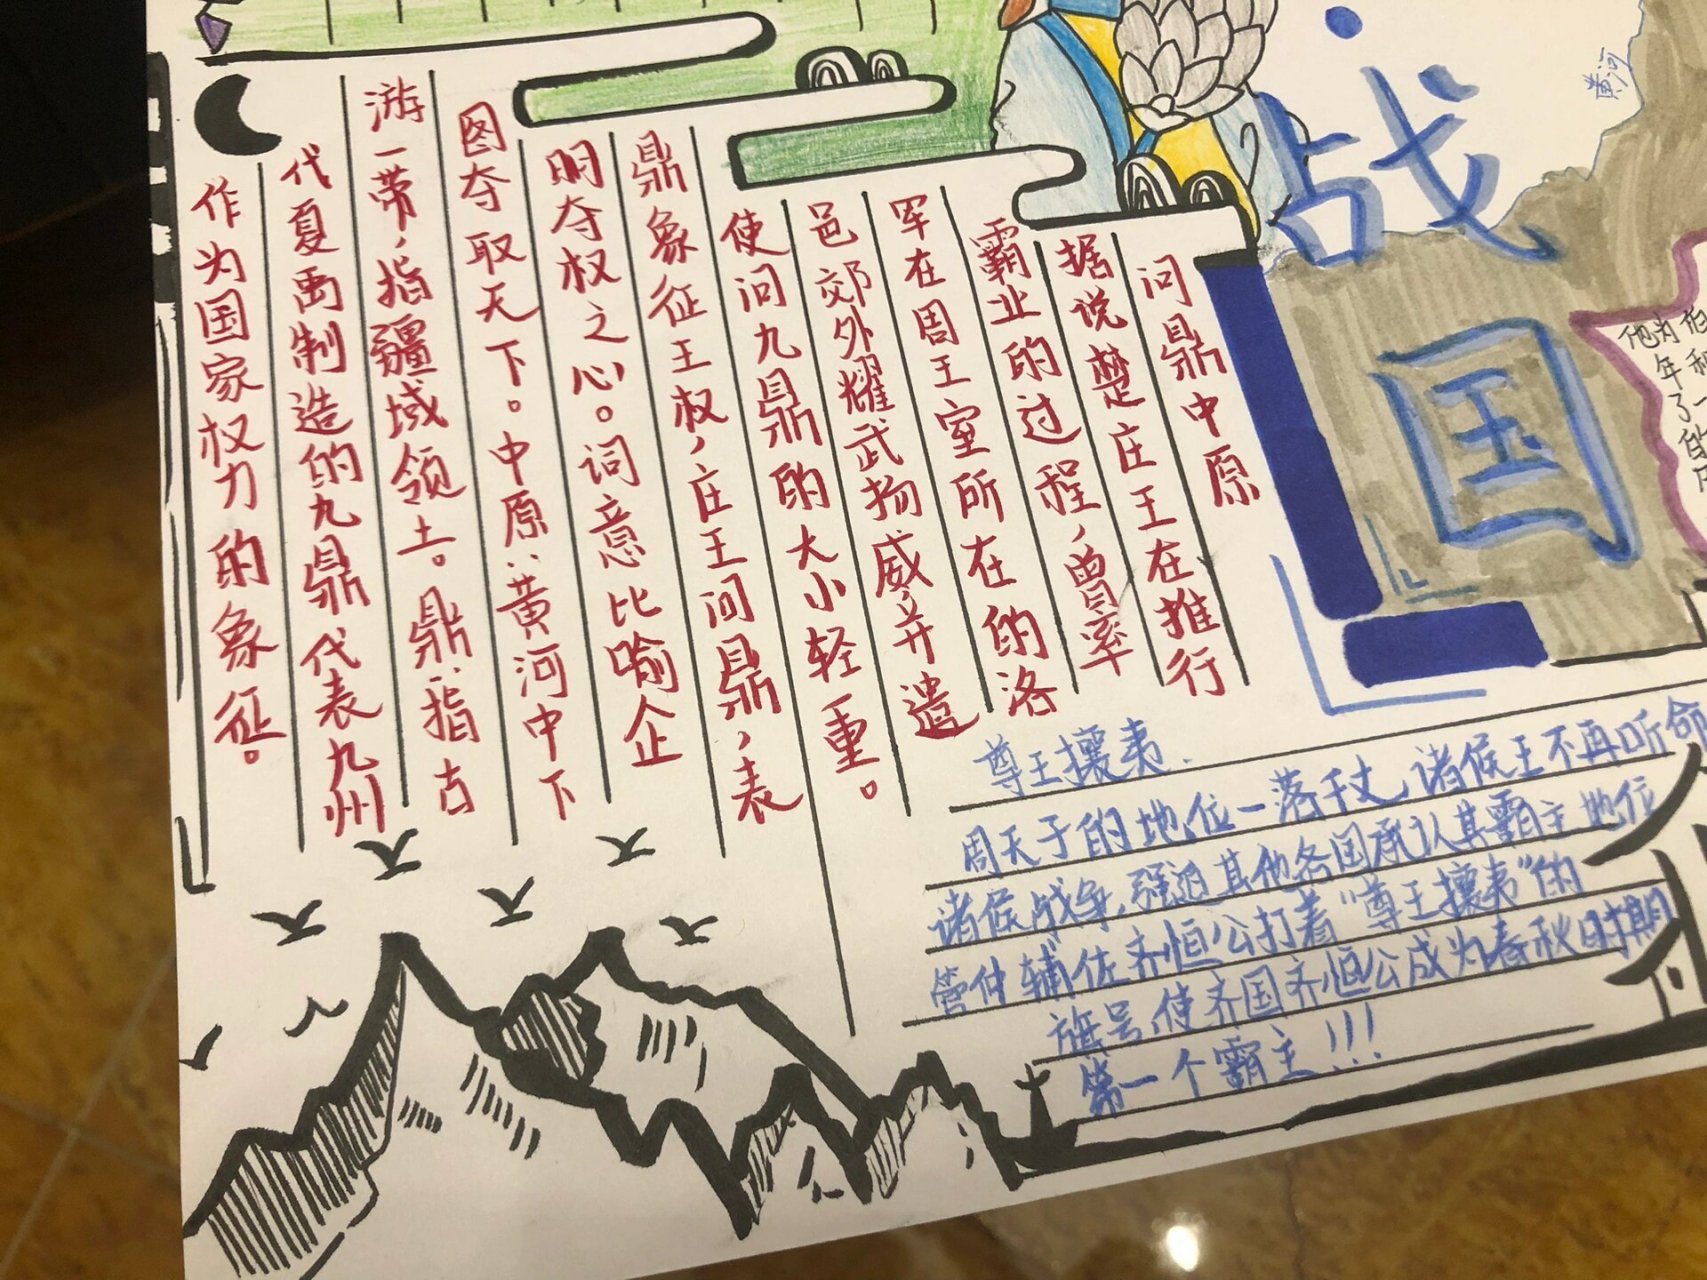 战
国
黄河
问鼎中原
据说楚庄王在推行
霸业的过程,曾率
军在周王室所在的洛
邑郊外耀武扬威,并遣
使问九鼎的大小轻重。
鼎象征王权,庄王问鼎,表
明夺权之心。词意比喻企
图夺取天下。中原:黄河中下
游一带,指疆域领土。鼎:指古
代夏禹制造的九鼎代表九州
作为国家权力的象征。
尊王攘夷.
周天子的地位一落千丈,诸侯王不再听命
诸侯战争,强迫其他各国承认其霸主地位
管仲辅佐齐恒公打着“尊王攘夷”的
旗号,使齐国齐恒公成为春秋时期
第一个霸主!!!
他为
年
了一
的